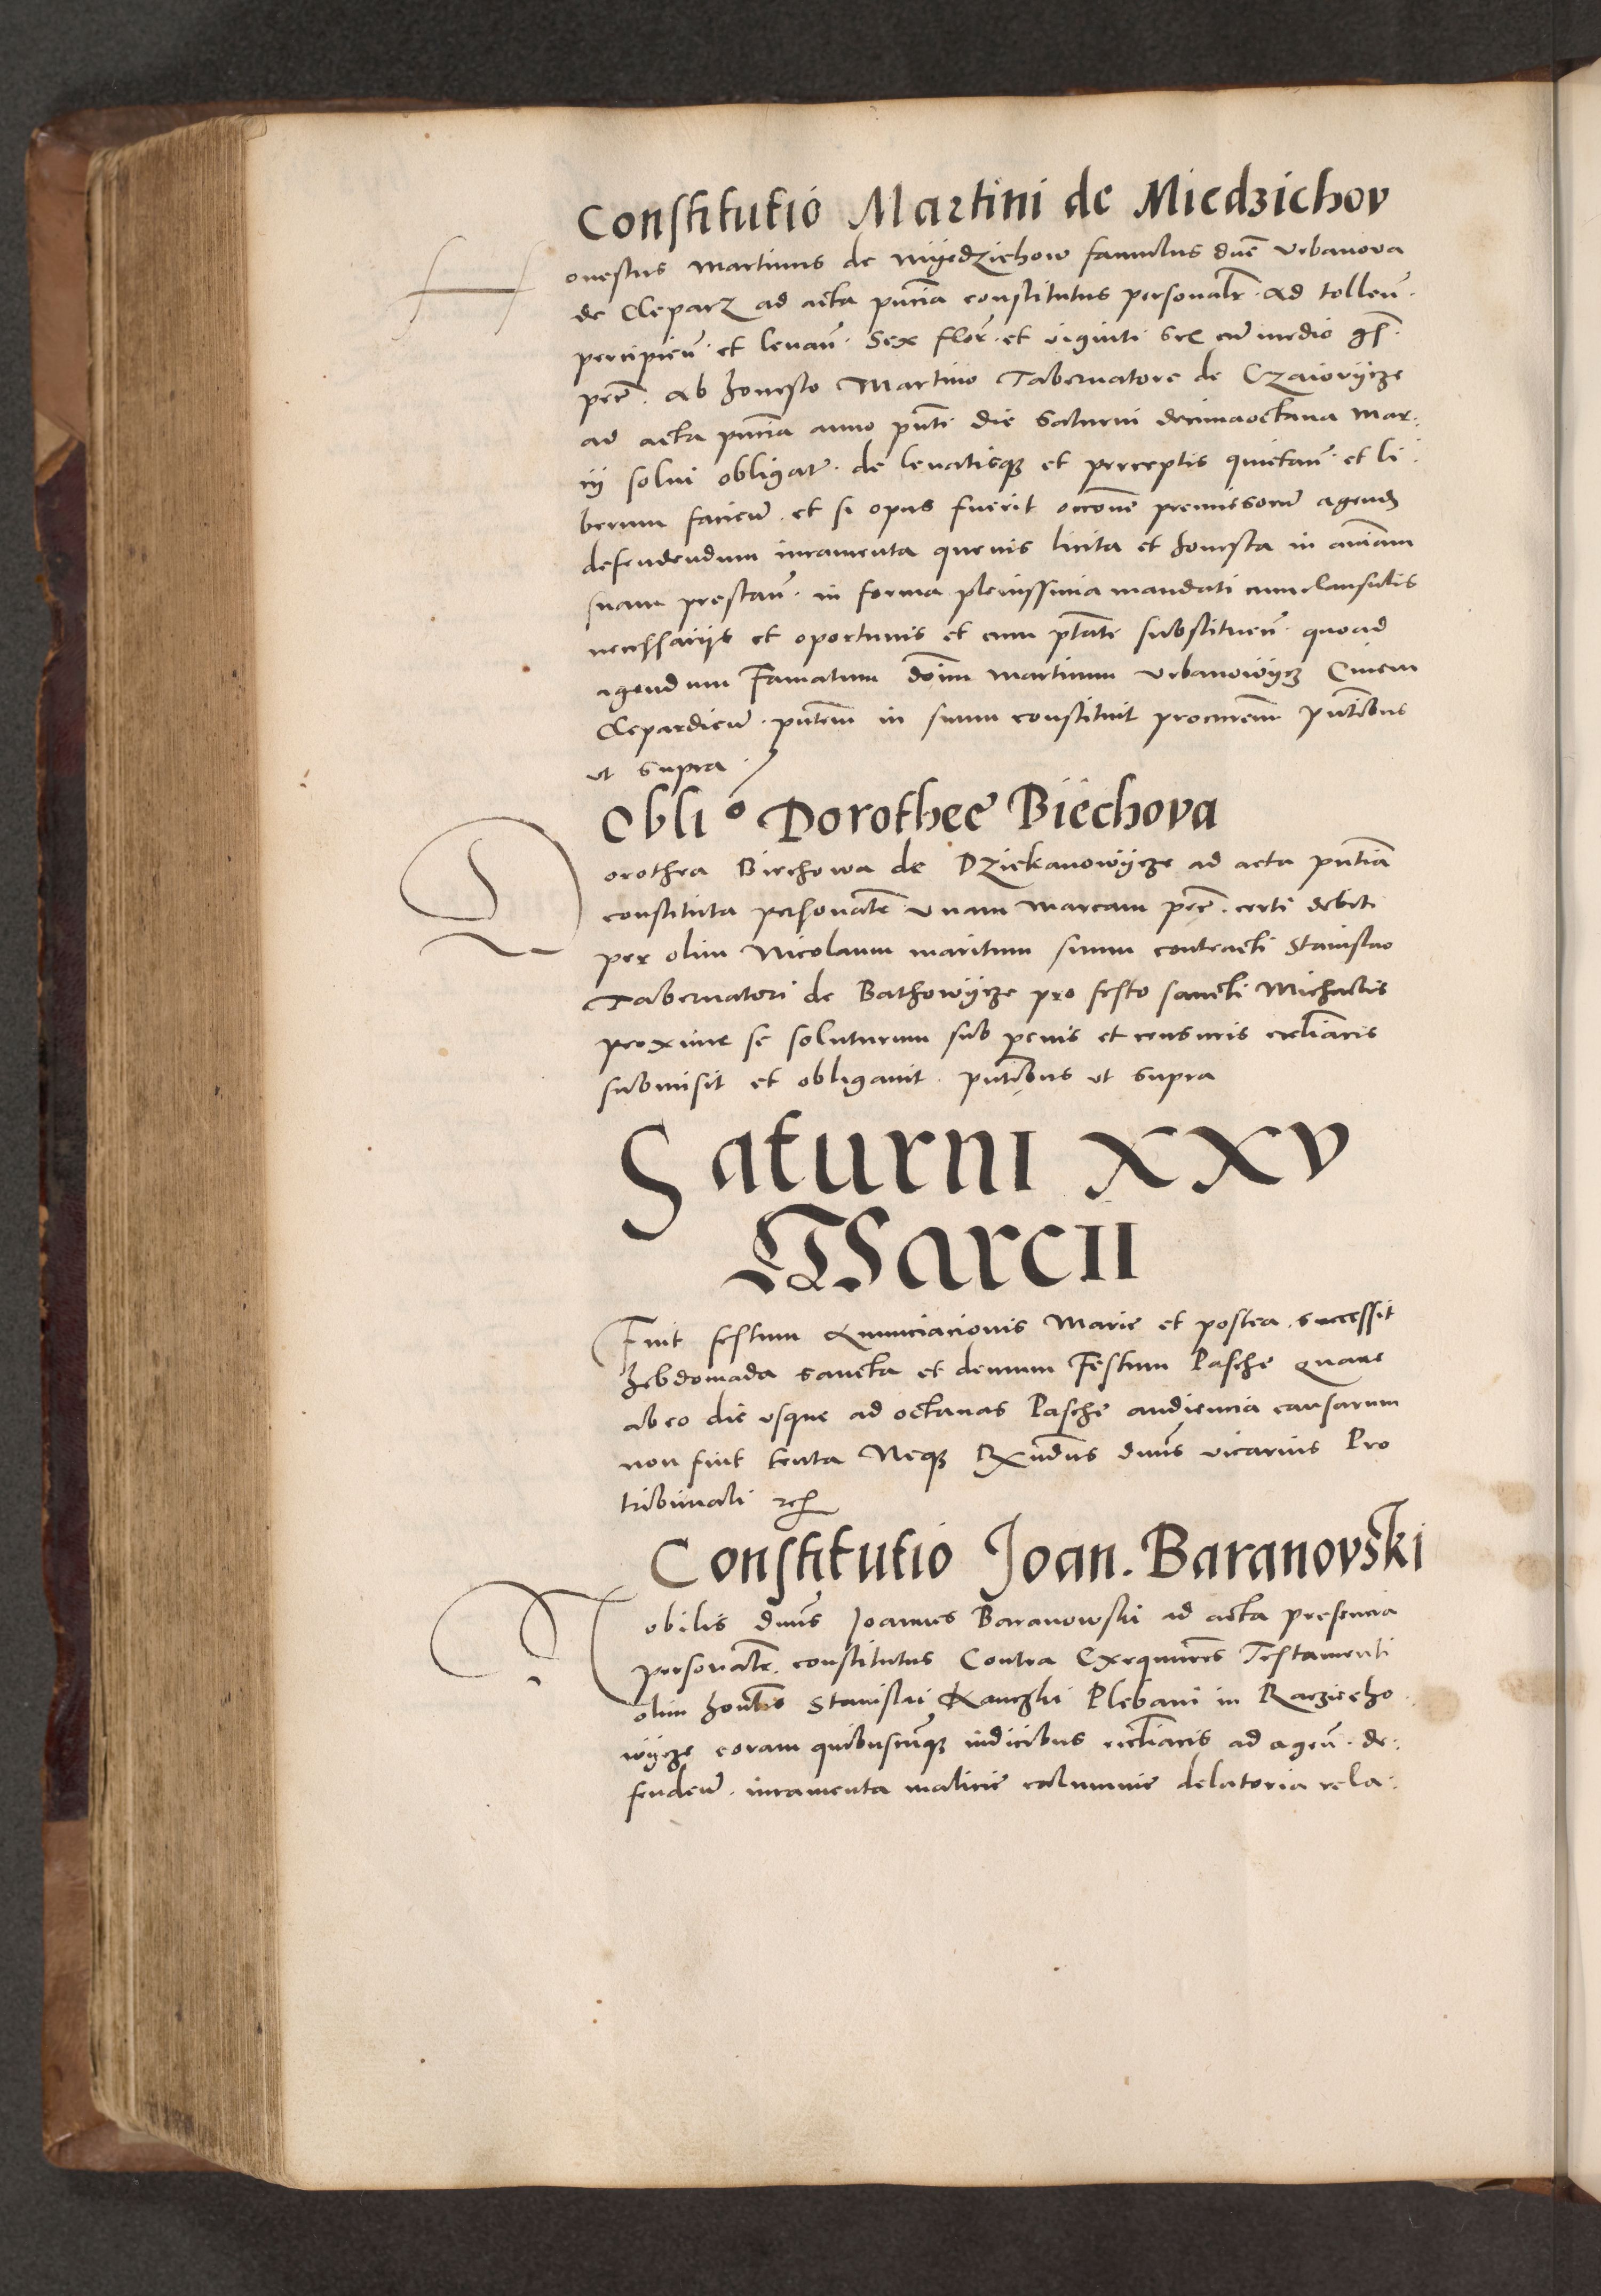 Constitutio Martini de Miedzichov
Honestus Martinus de Myedzichow famulus dne Urbanova
de Cleparz ad acta pncia constitutus personalr. Ad tollen.
percipien. et levan. Sex flor. et viginti sex cum medio gs.
pec. Ab honesto Martino Tabernatore de Czaiovycze
ad acta pncia anno pnti die Saturni decimaoctava Mar-
cij solvi obligat. de levatisque et perceptis quietan. et li-
berum facien. et si opus fuerit occone premissorum agend
defendendum iuramenta quevis licita et honesta in animam
suam prestan. in forma plenissima mandati cum clausulis
necessariis et oportunis et cum ptate substituen. quoad
agendum Famatum doim Martinum Urbanowycz Civem
Clepardien. pntem in suum constituit procurem pntibus
ut supra.
Oblio Dorothee Biechova
Dorothea Biechowa de Dziekanowycze ad acta pntia
constituta personalte unam marcam pec. certi debiti
per olim Nicolaum maritum suum contracti Stanislao
Tabernatori de Bathowycze pro festo sancti Michaelis
proxime se soluturum sub penis et censuris ecclianis
submisit et obligavit. pntibus ut supra
Saturni XXV
Marcii
Fuit festum Annunciacionis Marie et postea successit
hebdomada sancta et demum Festum Pasche Quare
ab eo die usque ad octavas Pasche audiencia causarum
non fuit tenta Neque Rxndus dnus vicarius Pro
tribunali etc
Constitutio Joan. Baranovski
Nobilis dnus Joannes Baranowski ad acta presencia
personalte. constitutus Contra Exequutores Testamenti
olim honbis Stanislai Plebani in Racziecho-
wycze coram quibuscunque iudicibus eccliacis ad agen. de-
fenden. iuramenta malicie calumnie delatoria rela-